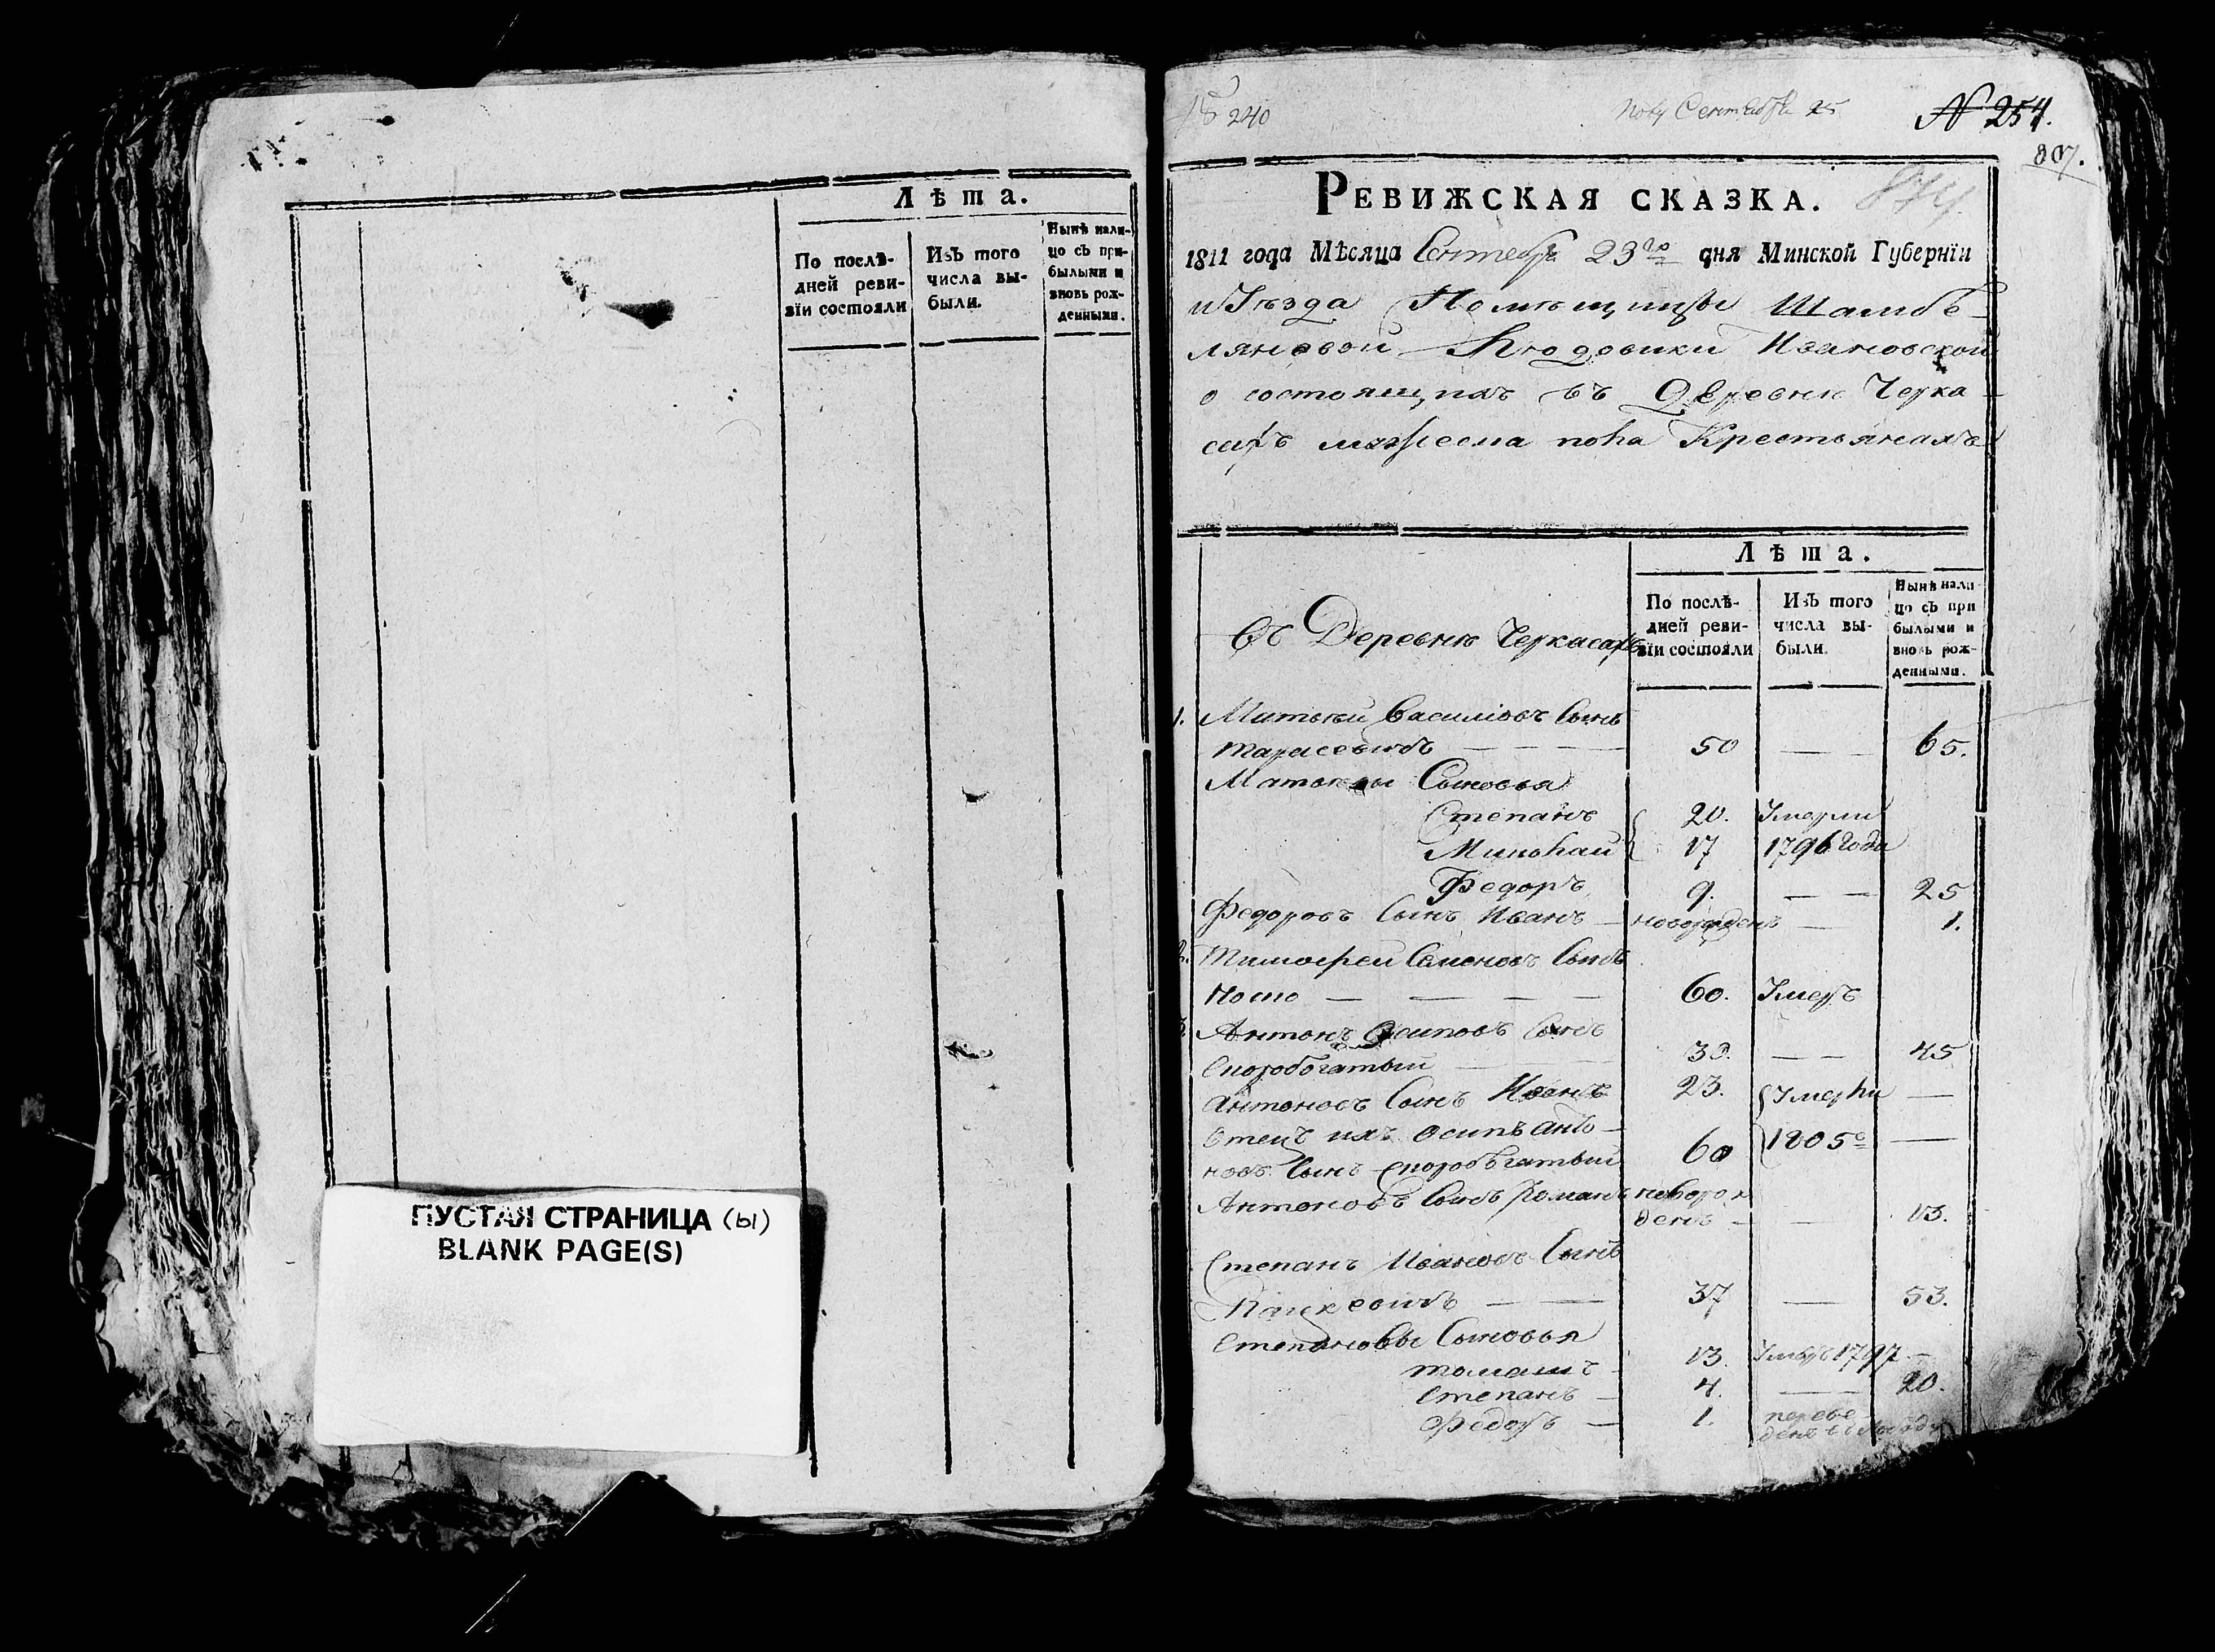 Лѣта.
По послѣ-
дней реви-
зїи состояли
Изъ того
числа вы-
были.
Нынѣ нали-
цо съ при-
былыми и
вновь рож-
денными.
ПУСТАЯ СТРАНИЦА (Ы)
BLANK PAGE(S)
№ 240
Сентября 25
№ 254.
807.
874.
РЕВИЖСКАЯ СКАЗКА.
1811 года Мѣсяца Сентября 23го дня Минской Губернїи
и Уѣзда Помѣщицы Шамбе-
ляновой Людовики Ивановской
о состоящихъ въ Деревнѣ Черка-
сахъ мужеска пола Крестьянахъ
Лѣта.
Въ Деревнѣ Черкасахъ
По послѣ-
дней реви-
зїи состояли
Изъ того
числа вы-
были.
Нынѣ нали
цо съ при
былыми и
вновь рож-
денными.
1. Матвѣй Василіовъ Сынъ
Тарасевичъ — 50 — 65.
Матвѣевы Сыновья
Степанъ 20. Умерли
Михайла 17 1796 Года
Федоръ 9. — 25
Федоровъ Сынъ Иванъ — новорожденъ — 1.
2. Тимофей Семеновъ Сынъ
60. Умеръ
3. Антонъ Осиповъ Сынъ
Скоробогатый — 30. — 45
Антоновъ Сынъ Иванъ 23. Умерли —
Отецъ ихъ Осипъ Анто-
новъ Сынъ Скоробогатый 60 1805го —
Антоновъ Сынъ Романъ новорож
денъ — — 13.
Степанъ Ивановъ Сынъ
Кацкевичъ — 37 — 53.
Степановы Сыновья
Томашъ 13. Умеръ 1797 —
Степанъ — 4. — 20.
Федоръ — 1. переве
денъ въ